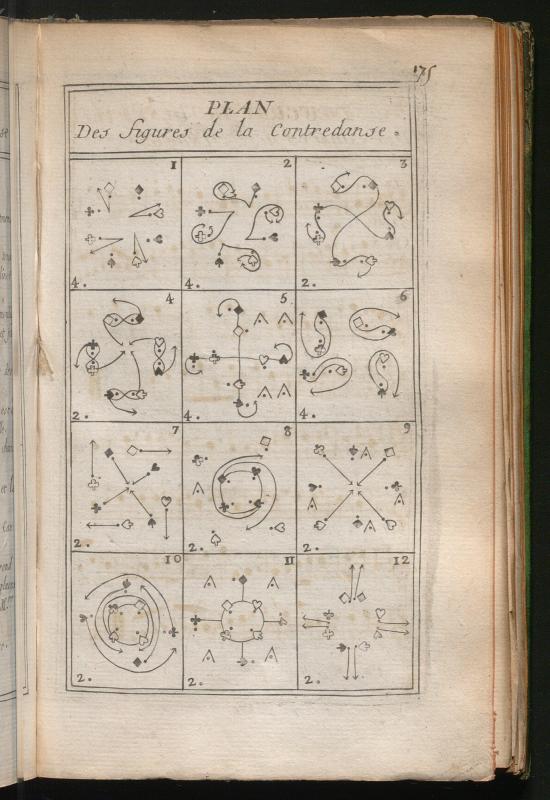 175
PLAN
Des figures de la Contredanse.
1 2 3
4. 4. 2.
4 5 6
2. 4. 4.
7 8 9
2. 2. 2.
10 11 12
2. 2. 2.